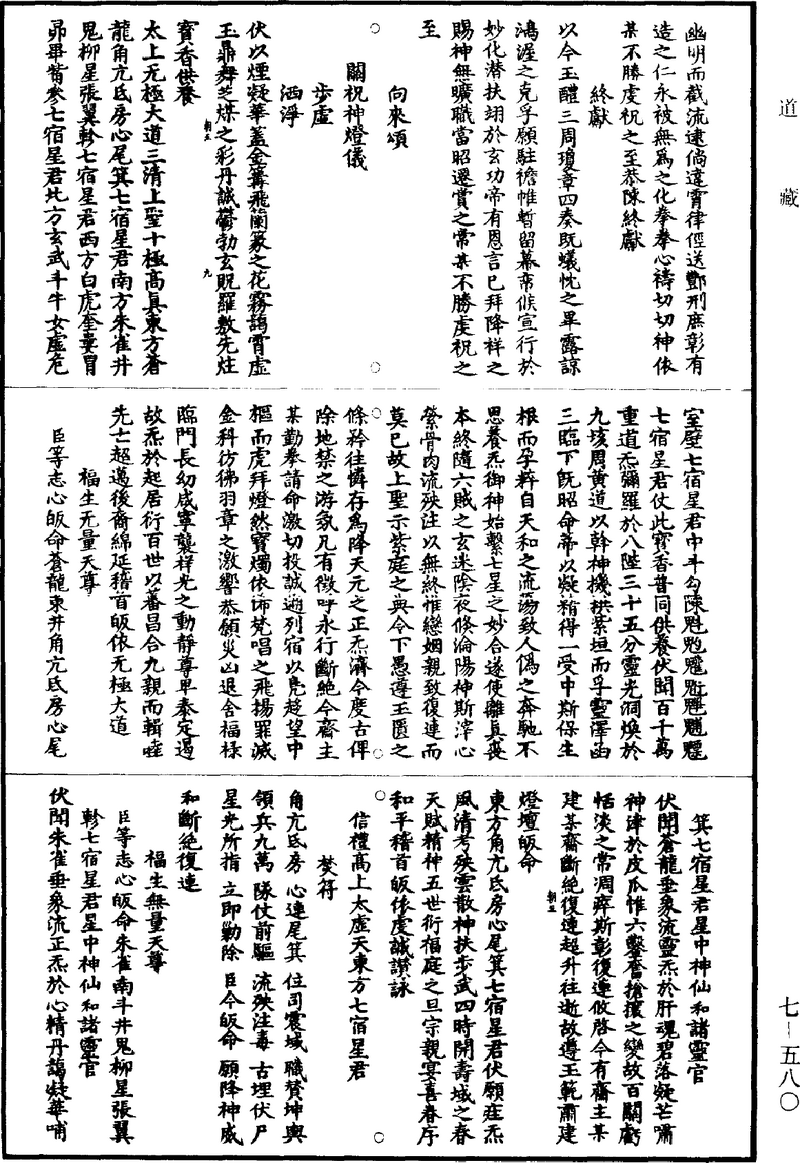 道藏
幽明而截流逮倘違霄律俓送酆刑庶彰有
造之仁永被無爲之化拳拳心禱切切神依
某不勝虔祝之至恭陳終獻
終獻
以今玉醴三周瓊章四奏既蟻忱之畢露諒
鴻渥之克孚願駐襜帷暫留幕帟候宣行於
妙化潛扶翊於玄功帝有恩言已拜降祥之
賜神無曠職當昭遷賞之常某不勝虔祝之
至
向來頌
關祝神燈儀
步虛
洒淨
伏以煙凝華蓋金篝飛蘭篆之花霧譪霄虛
玉鼎舞芝煤之彩丹誠欝勃玄貺羅敷先炷
寶香供養
太上无極大道三清上聖十極高真東方蒼
龍角亢氐房心尾箕七宿星君南方朱雀井
鬼柳星張翼軫七宿星君西方白虎奎婁胃
昴畢觜參七宿星君北方玄武斗牛女虛危
室壁七宿星君中斗勾陳魁䰢𩵄魓𩳐䰢魒
七宿星君仗此寶香普同供養伏聞百千萬
重道炁彌羅於八陛三十五分靈光洞煥於
九垓周黃道以斡神機拱紫垣而孚靈澤函
三臨下既昭命蒂以凝精得一受中斯保生
根而孕粹自天和之流蕩致人僞之奔馳不
思養炁御神始繫七星之妙合遂使離真喪
本終隨六賊之玄迷陰夜倏淪陽神斯滓心
縈骨肉流殃注以無終惟戀姻親致復連而
莫已故上聖示紫庭之典令下愚遵玉匱之
條矜往憐存爲降天元之正炁濟今度古俾
除地禁之游氛凡有徵呼永行斷絕今齋主
某勤拳請命激切投誠遡列宿以凫趍望中
樞而虎拜燈然寶燭依俙梵唱之飛揚罪滅
金科彷彿羽章之激響恭願災凶退舍福祿
臨門長幼咸寧襲祥光之動靜尊卑泰定遏
故炁於起居衍百世以蕃昌合九親而輯睦
先亡超邁後裔綿延稽首皈依无極大道
福生无量天尊
臣等志心皈命蒼龍東井角亢氐房心尾
箕七宿星君星中神仙和諸靈官
伏聞蒼龍垂象流靈炁於肝魂碧落凝芒嘯
神津於皮瓜惟六鑿奮搶攘之變故百關虧
恬淡之常凋瘁斯彰復連攸啓今有齋主某
建某齋斷絕復連超升往逝故遵玉範肅建
燈壇皈命
東方角亢氐房心尾箕七宿星君伏願疰炁
風清考殃雲散神扶步武四時開壽域之春
天賦精神五世衍福庭之旦宗親宴喜眷序
和平稽首皈依虔誠讚詠
信禮高上太虛天東方七宿星君
焚符
角亢氐房 心連尾箕 位司震域 職贊坤輿
領兵九萬 隊仗前驅 流殃注毒 古埋伏尸
星光所指 立即勦除 臣今皈命 願降神威
和斷絕復連
福生無量天尊
臣等志心皈命朱雀南斗井鬼柳星張翼
軫七宿星君星中神仙和諸靈官
伏聞朱雀垂象流正炁於心精丹藹凝華哺
七－五八〇